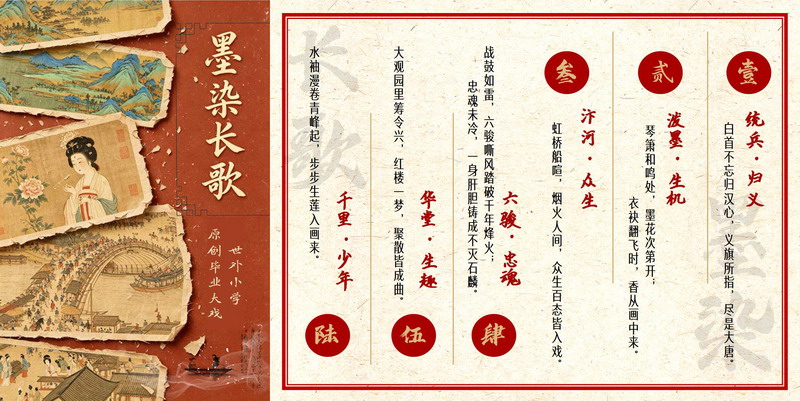 墨染长歌
世外小学
原创毕业大戏
长歌
墨染
壹
统兵·归义
白首不忘归汉心,义旗所指,尽是大唐。
贰
泼墨·生机
琴箫和鸣处,墨花次第开;
衣袂翻飞时,香从画中来。
叁
汴河·众生
虹桥船喧,烟火人间,众生百态皆入戏。
肆
六骏·忠魂
战鼓如雷,六骏嘶风踏破千年烽火;
忠魂未冷,一身肝胆铸成不灭石麟。
伍
华堂·生趣
大观园里筹令兴,红楼一梦,聚散皆成曲。
陆
千里·少年
水袖漫卷青峰起,步步生莲入画来。